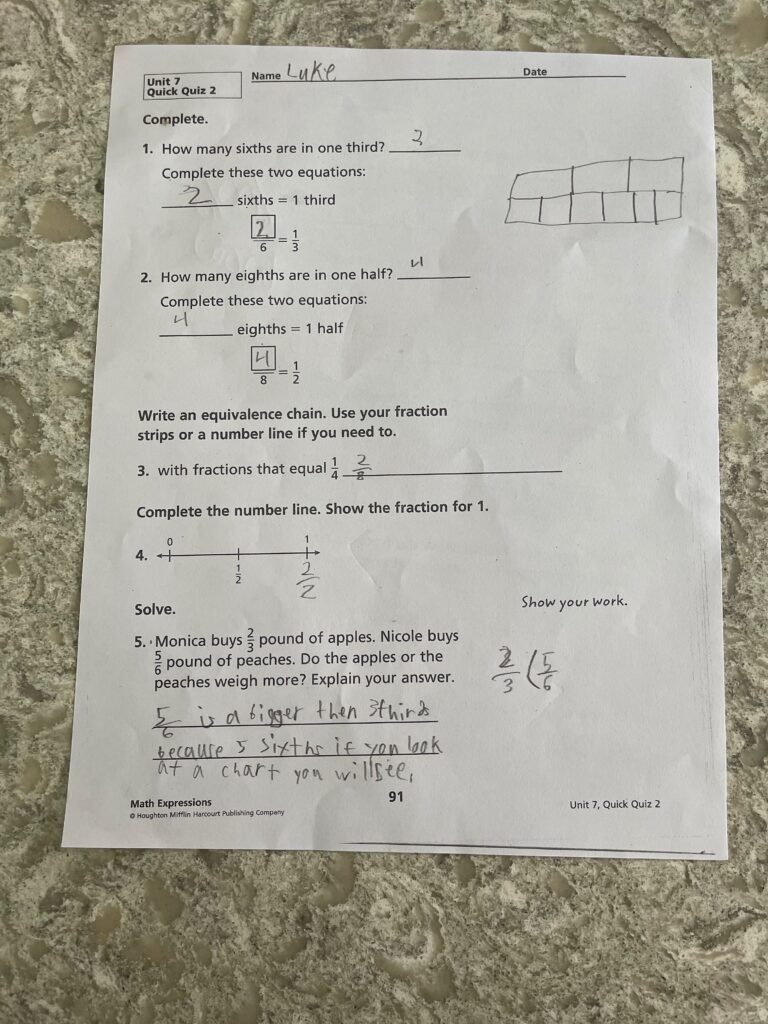 Unit 7
Quick Quiz 2
Name Luke
Date
Complete.
1. How many sixths are in one third? 2
Complete these two equations:
2 sixths = 1 third
2/6 = 1/3
2. How many eighths are in one half? 4
Complete these two equations:
4 eighths = 1 half
4/8 = 1/2
Write an equivalence chain. Use your fraction
strips or a number line if you need to.
3. with fractions that equal 1/4 2/8
Complete the number line. Show the fraction for 1.
4. 0 1
1/2 2/2
Solve.
Show your work.
5. Monica buys 2/3 pound of apples. Nicole buys
5/6 pound of peaches. Do the apples or the
peaches weigh more? Explain your answer.
2/3 ( 5/6
5/6 is a bigger then 3thirds
because 5 sixths if you look
at a chart you will see,
Math Expressions
© Houghton Mifflin Harcourt Publishing Company
91
Unit 7, Quick Quiz 2